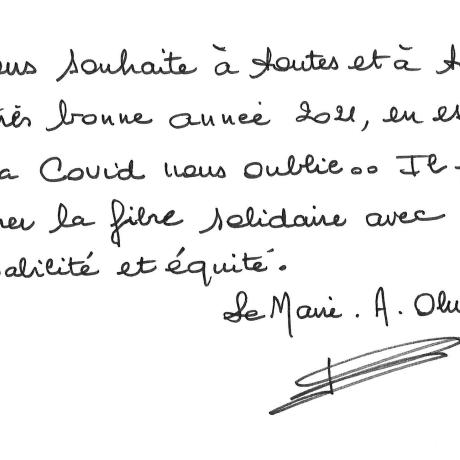 ous souhaite à toutes et à t
rès bonne année 2021, en es
a Covid nous oublie.. Il
ner la fibre solidaire avec
abilité et équité.
Le Maire. A. Olu